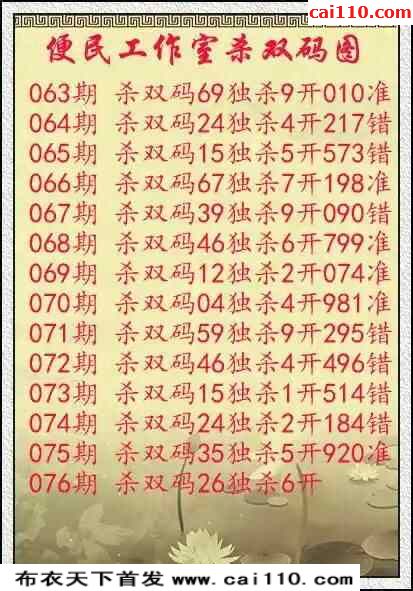 cai110.com
便民工作室杀双码图
063期 杀双码69独杀9开010准
064期 杀双码24独杀4开217错
065期 杀双码15独杀5开573错
066期 杀双码67独杀7开198准
067期 杀双码39独杀9开090错
068期 杀双码46独杀6开799准
069期 杀双码12独杀2开074准
070期 杀双码04独杀4开981准
071期 杀双码59独杀9开295错
072期 杀双码46独杀4开496错
073期 杀双码15独杀1开514错
074期 杀双码24独杀2开184错
075期 杀双码35独杀5开920准
076期 杀双码26独杀6开
布衣天下首发 www.cai110.com